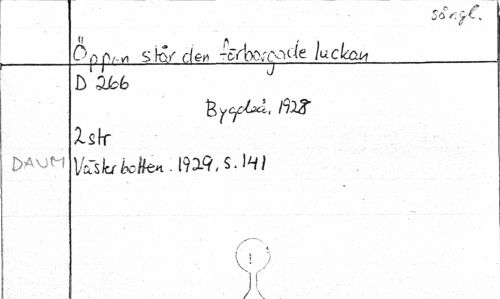 sångl.
Öppen står den förborgade luckan
D 266
Bygdeå, 1928
2 str
DAUM Västerbotten. 1929, s. 141